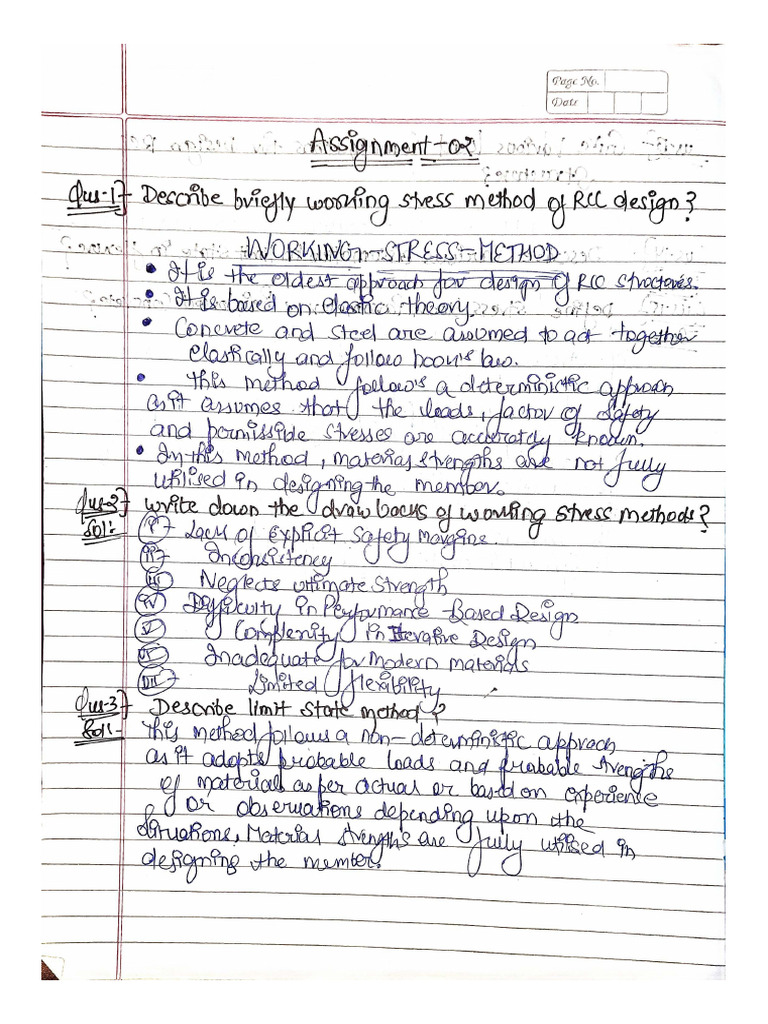 Page No.
Date
Assignment-02
Qus-1 Describe briefly working stress method of RCC design?
WORKING-STRESS-METHOD
• It is the oldest approach for design of RCC structures.
• It is based on elastic theory.
• Concrete and steel are assumed to act together
elastically and follow hook's law.
• This method follow's a deterministic approach
as it assumes that the loads, factor of safety
and permissible stresses are accurately known.
• In this method, material strengths are not fully
utilised in designing the member.
Qus-2 write down the draw backs of working stress methods?
Sol:- (i) Lack of Explicit Safety Margins.
(ii) Inconsistency
(iii) Neglects ultimate Strength
(iv) Difficulty in Performance-Based Design
(v) Complexity in Iterative Design
(vi) Inadequate for Modern materials
(vii) Limited flexibility
Qus-3 Describe limit state method?
Sol:- This method follows a non-deterministic approach
as it adopts probable loads and probable strengths
of material as per actual or based on experience
or observations depending upon the
situations, Material strengths are fully utilised in
designing the member.